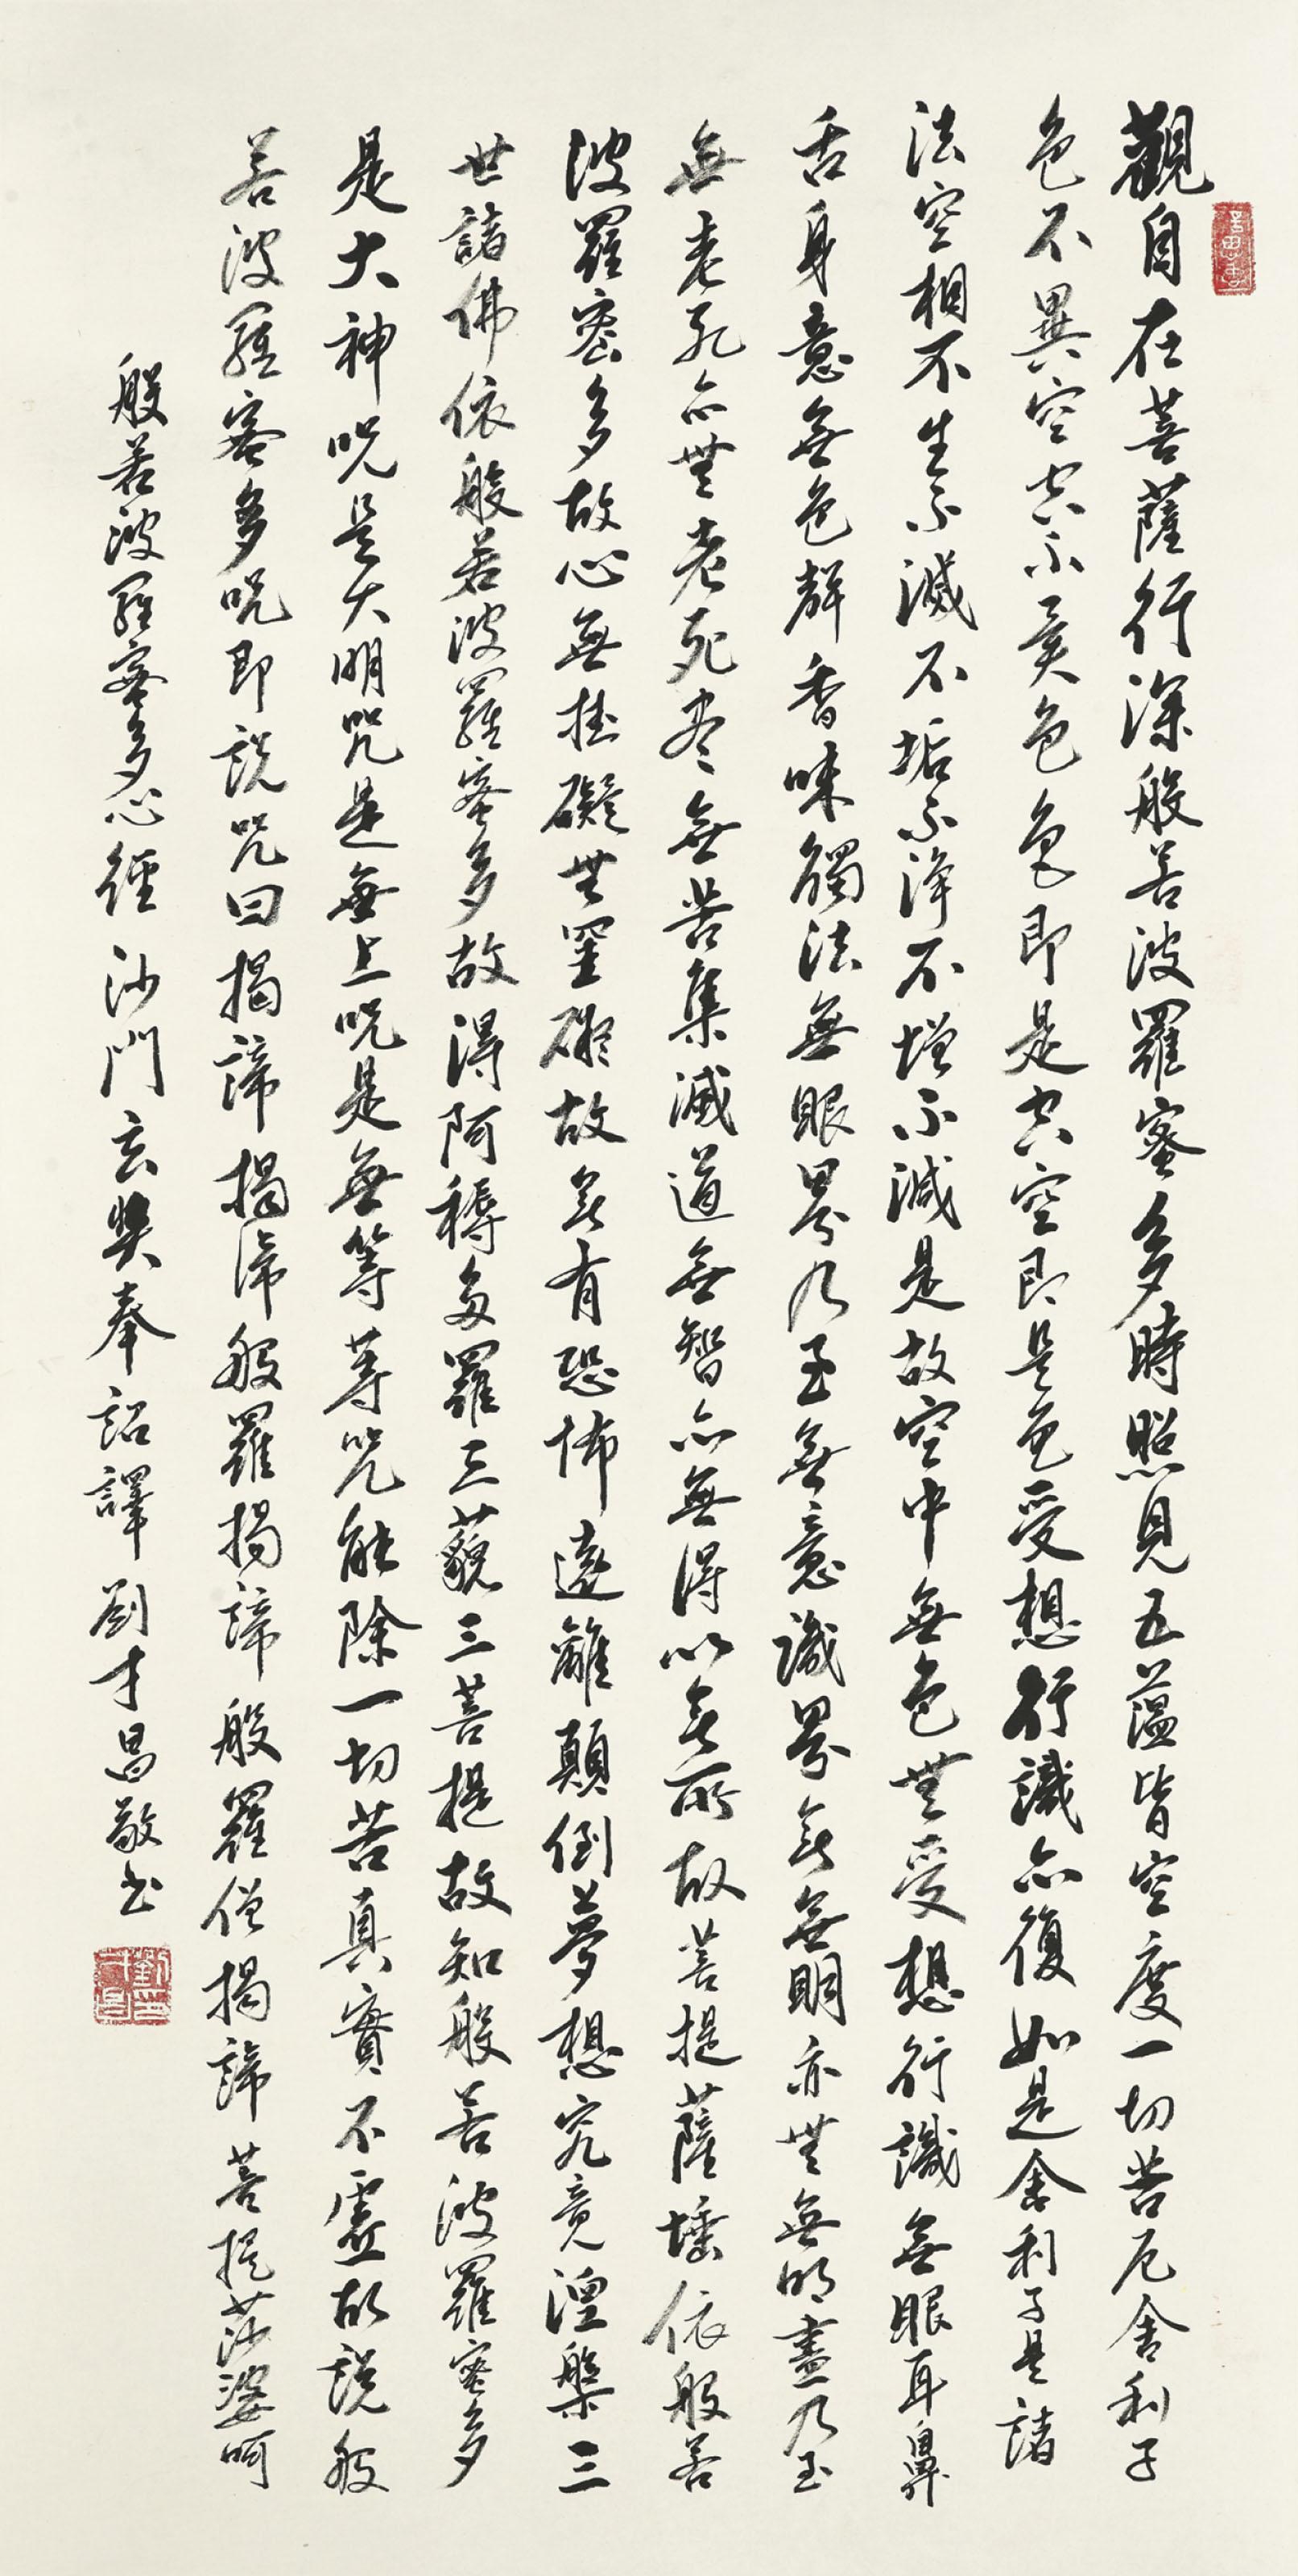 觀自在菩薩行深般若波羅蜜多時照見五蘊皆空度一切苦厄舍利子
色不異空空不異色色即是空空即是色受想行識亦復如是舍利子是諸
法空相不生不滅不垢不淨不增不減是故空中無色無受想行識無眼耳鼻
舌身意無色聲香味觸法無眼界乃至無意識界无無明亦無無明盡乃至
無老死亦無老死尽無苦集滅道無智亦無得以无所故菩提薩埵依般若
波羅蜜多故心無挂礙無罣礙故无有恐怖遠離顛倒夢想究竟涅槃三
世諸佛依般若波羅蜜多故得阿耨多羅三藐三菩提故知般若波羅蜜多
是大神咒是大明咒是無上咒是無等等咒能除一切苦真實不虛故說般
若波羅蜜多咒即說咒曰揭諦揭諦般羅揭諦般羅僧揭諦菩提莎婆呵
般若波羅蜜多心經 沙門玄奘奉詔譯 劉才昌敬书
劉才昌印